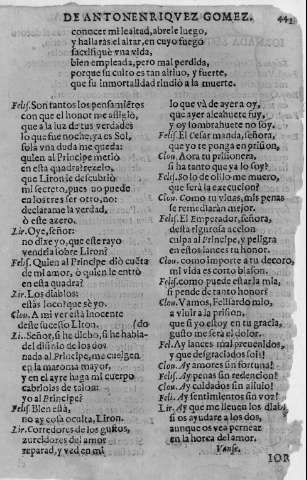 DE ANTONENRIQVEZ GOMEZ. 441
conocer mi lealtad, abrele luego,
y hallaràs el altar, en cuyo fuego
sacrifiquè vna vida,
bien empleada, pero mal perdida,
porque su culto es tan altiuo, y fuerte,
que su inmortalidad rindiò a la muerte.
Felis. Son tantos los pensamiẽtos
con que el honor me afligiò,
que a la luz de tus verdades
lo que fue noche, ya es Sol,
sola vna duda me queda:
quien al Principe metiò
en esta quadra? rezelo,
que Liron le descubriò
mi secreto, pues no puede
en los tres ser otro, no:
declarame la verdad,
ò este azero.
Lir. Oye, señor:
no dixe yo, que este rayo
vendria sobre Liron?
Felis. Quien al Principe diò cuẽta
de mi amor, ò quien le entrò
en esta quadra?
Lir. Los diablos:
estàs loco? que sè yo.
Clou. A mi ver està inocente
deste sucesso Liron. (do
Li. Señor, si he dicho, si he habla-
del disinio de los dos
nada al Principe, me cuelguen
en la maroma mayor,
y en el ayre haga mi cuerpo
cabriolas de talon:
yo al Principe?
Felis. Bien està,
no ay cosa oculta, Liron.
Lir. Corredores de los gustos,
zurcidores del amor
reparad, y ved en mi
lo que và de ayer a oy,
que ayer alcahuete fuy,
y oy sombra huete no soy.
Felis. El Cesar manda, señora,
que yo te ponga en prision,
Clou. Aora tu prisionera,
si ha tanto que ya lo soy?
Felis. Solo de oillo me muero,
que serà la execucion?
Clou. Como tu viuas, mis penas
se remediaràn mejor.
Felis. El Emperador, señora,
desta rigurosa accion
culpa al Principe, y peligra
en estos lances tu honor.
Clou. como importe a tu decoro,
mi vida es corto blason.
Felis. como puede estarla mia,
si pende de tanto honor?
Clou. Vamos, Felisardo mio,
a viuir a la prision,
que si yo estoy en tu gracia,
gusto me serà el dolor.
Fel. Ay lances mal preuenidos,
y que desgraciados sois!
Clou. Ay amores sin fortuna!
Felis. Ay penas sin redencion!
Clou. Ay cuidados sin aliuio!
Felis. Ay sentimientos sin voz!
Lir. Ay que me lleuen los diablos
si os ayudare a los dos,
aunque os vea pernear
en la horca del amor.
Vanse.
IOR